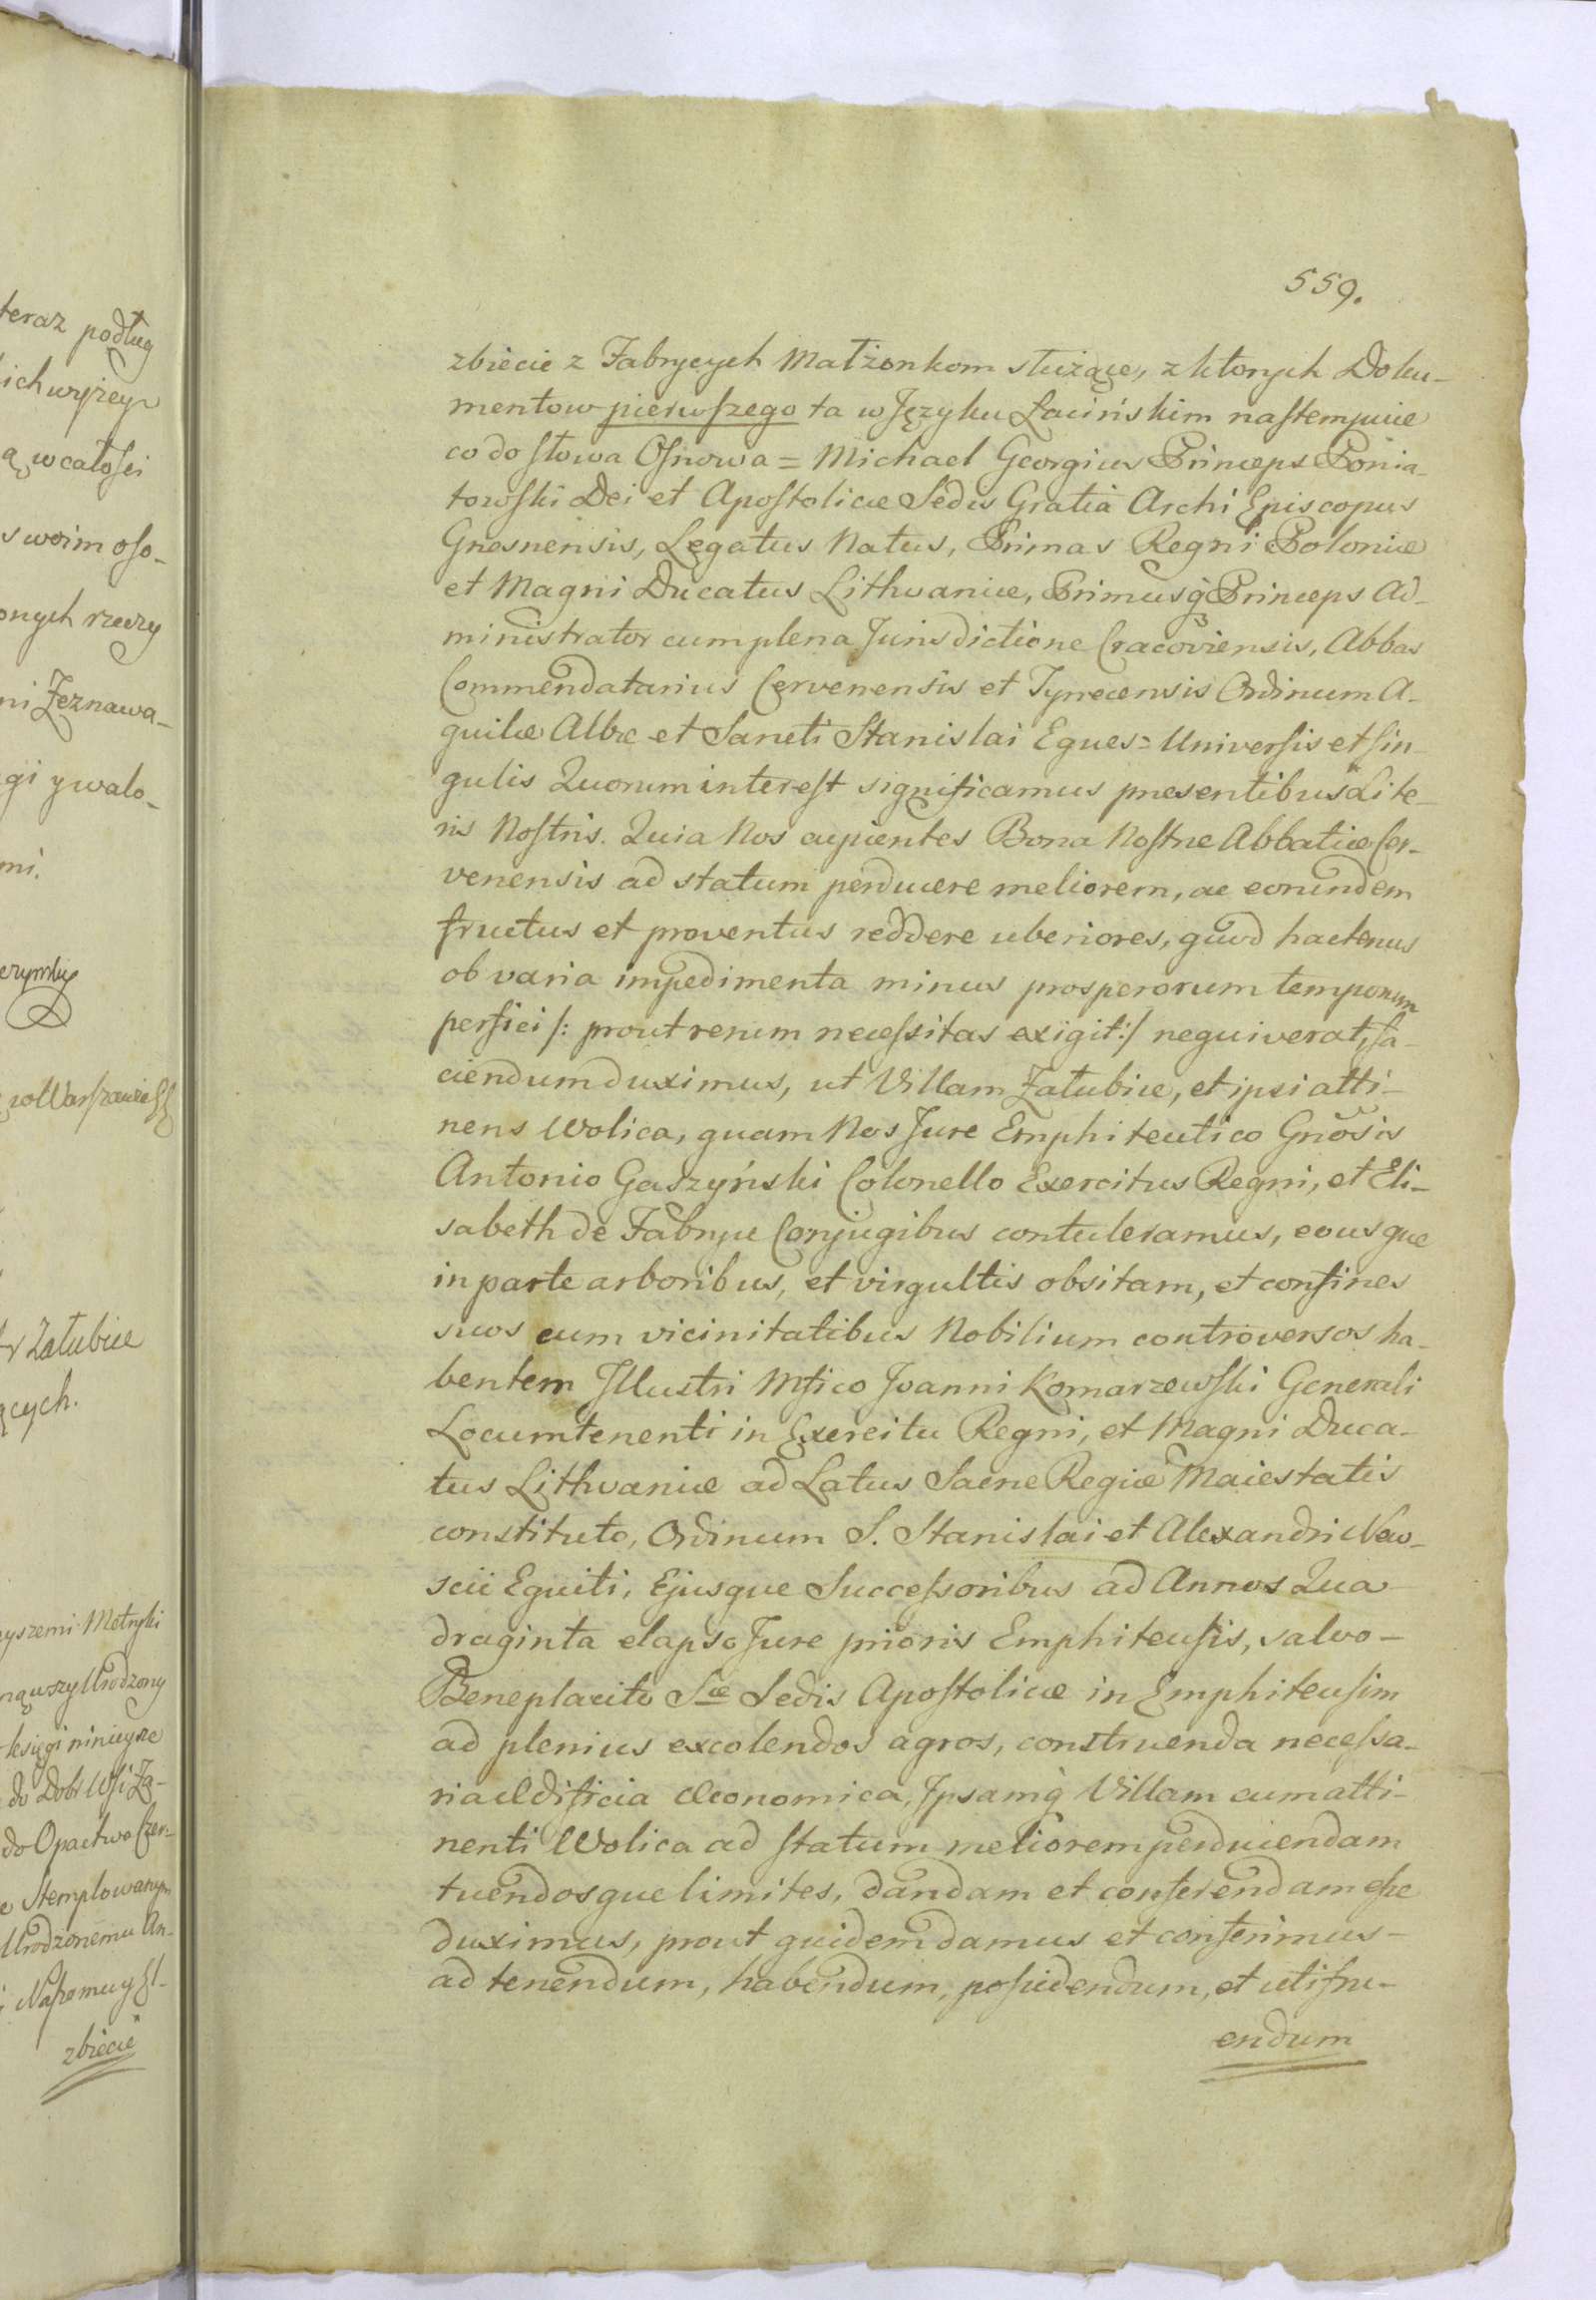 teraz podług
ich wyżey
ą w całości
swoim oso-
onych rzeczy
ni Zeznawa-
gi y walo-
mi.
w Warszawie
Załubice
ących.
yszemi Metryki
Urodzony
księgi ninieysze
do Dobr Wsi Za-
do Opactwa Czer-
Stemplowanym
Urodzonemu An-
zbiecie
559.
zbiecie z Fabrycych Małżonkom służące, z ktorych Doku-
mentow pierwszego ta w Języku Łacińskim nastempuie
co do słowa Osnowa = Michael Georgius Princeps Ponia-
towski Dei et Apostolicæ Sedis Gratia Archi Episcopus
Gnesnensis, Legatus Natus, Primas Regni Poloniæ
et Magni Ducatus Lithvaniæ, Primusq Princeps Ad-
ministrator cum plena Jurisdictione Cracoviensis, Abbas
Commendatarius Cervenensis et Tynecensis Ordinum A-
quilæ Albæ et Sancti Stanislai Eques = Universis et sin-
gulis Quorum interest significamus præsentibus Lite-
ris Nostris. Quia Nos cupientes Bona Nostræ Abbatiæ Cer-
venensis ad statum perducere meliorem, ac eorundem
fructus et proventus reddere uberiores, quod hactenus
ob varia impedimenta minus prosperorum temporum
perfici /: prout rerum necessitas exigit :/ nequiverat, fa-
ciendum duximus, ut Villam Załubice, et ipsi atti-
nens Wolica, quam Nos Jure Emphiteutico Gnosis
Antonio Gaszyński Colonello Exercitus Regni, et Eli-
sabeth de Fabryce Conjugibus contuleramus, eousque
in parte arboribus, et virgultis obsitam, et confines
suos cum vicinitatibus Nobilium controversos ha-
bentem Illustri Mfico Joanni Komarzewski Generali
Locumtenenti in Exercitu Regni, et Magni Duca-
tus Lithvaniæ ad Latus Sacræ Regiæ Maiestatis
constituto, Ordinum S. Stanislai et Alexandri New-
scii Equiti, Ejusque Successoribus ad Annos Qua-
draginta elapso Jure prioris Emphiteusis, salvo-
Beneplacito Sæ Sedis Apostolicæ in Emphiteusim
ad plenius excolendos agros, construenda necessa-
ria Ædificia Œconomica, Ipsamq Villam cum atti-
nenti Wolica ad statum meliorem perducendam
tuendosque limites, dandam et conferendam esse
duximus, prout quidem damus et conferimus-
ad tenendum, habendum, possidendum, et utifru-
endum